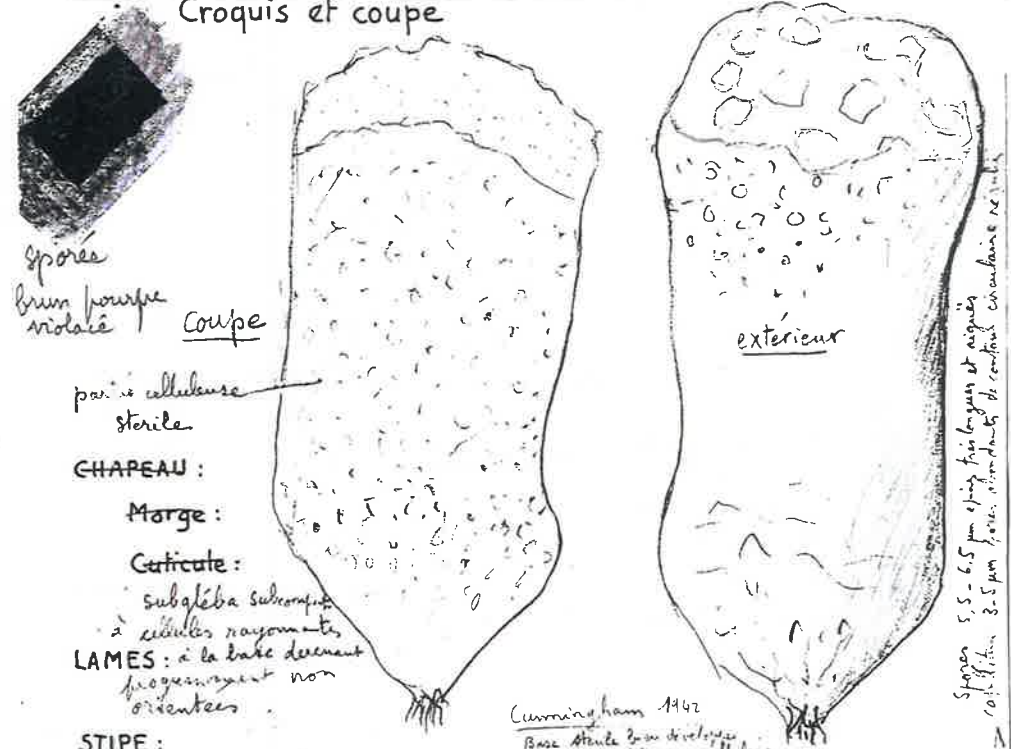 Croquis et coupe
sporée
brun pourpre
violacé
Coupe
extérieur
partie celluleuse
stérile
CHAPEAU :
Marge :
Cuticule :
subgléba
à cellules rayonnantes
LAMES : à la base devenant
progressivement non
orientées
STIPE :
Cunningham 1942
Base stérile bien développée
Spores 5,5 - 6,5 µm épines très longues et aiguës
capillitium 3-5 µm pores abondants de contour circulaire